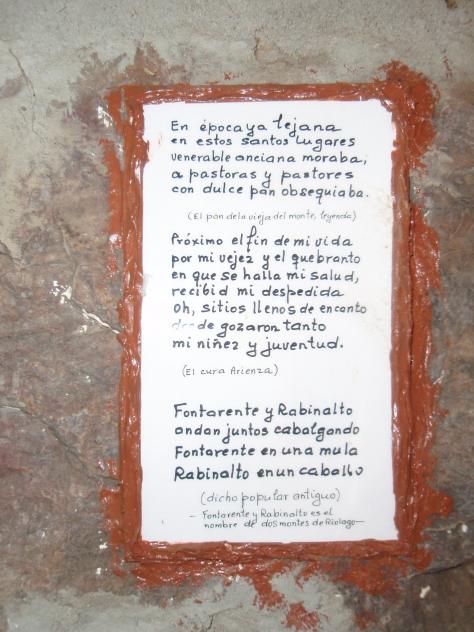 En época ya lejana
en estos santos lugares
venerable anciana moraba,
a pastoras y pastores
con dulce pan obsequiaba.
(El pan de la vieja del monte, leyenda)
Próximo el fin de mi vida
por mi vejez y el quebranto
en que se halla mi salud,
recibid mi despedida
oh, sitios llenos de encanto
donde gozaron tanto
mi niñez y juventud.
(El cura Arienza)
Fontarente y Rabinalto
andan juntos cabalgando
Fontarente en una mula
Rabinalto en un caballo
(dicho popular antiguo)
- Fontarente y Rabinalto es el
nombre de dos montes de Riolago-